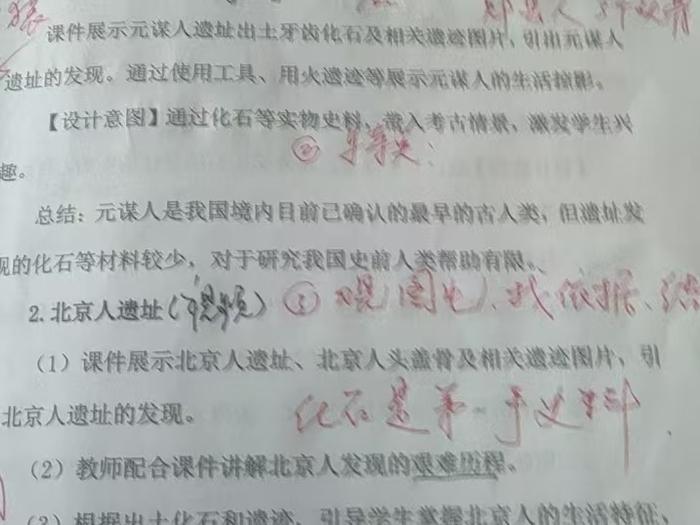 课件展示元谋人遗址出土牙齿化石及相关遗迹图片，引出元谋人
遗址的发现。通过使用工具、用火遗迹等展示元谋人的生活掠影。
【设计意图】通过化石等实物史料，带入考古情景，激发学生兴
趣。
②
总结：元谋人是我国境内目前已确认的最早的古人类，但遗址发
现的化石等材料较少，对于研究我国史前人类帮助有限。
2.北京人遗址（视频）③观图片、找依据、
（1）课件展示北京人遗址、北京人头盖骨及相关遗迹图片，引
北京人遗址的发现。
化石是第一手史料
（2）教师配合课件讲解北京人发现的艰难历程。
（3）根据出土化石和遗迹，引导学生掌握北京人的生活特征，